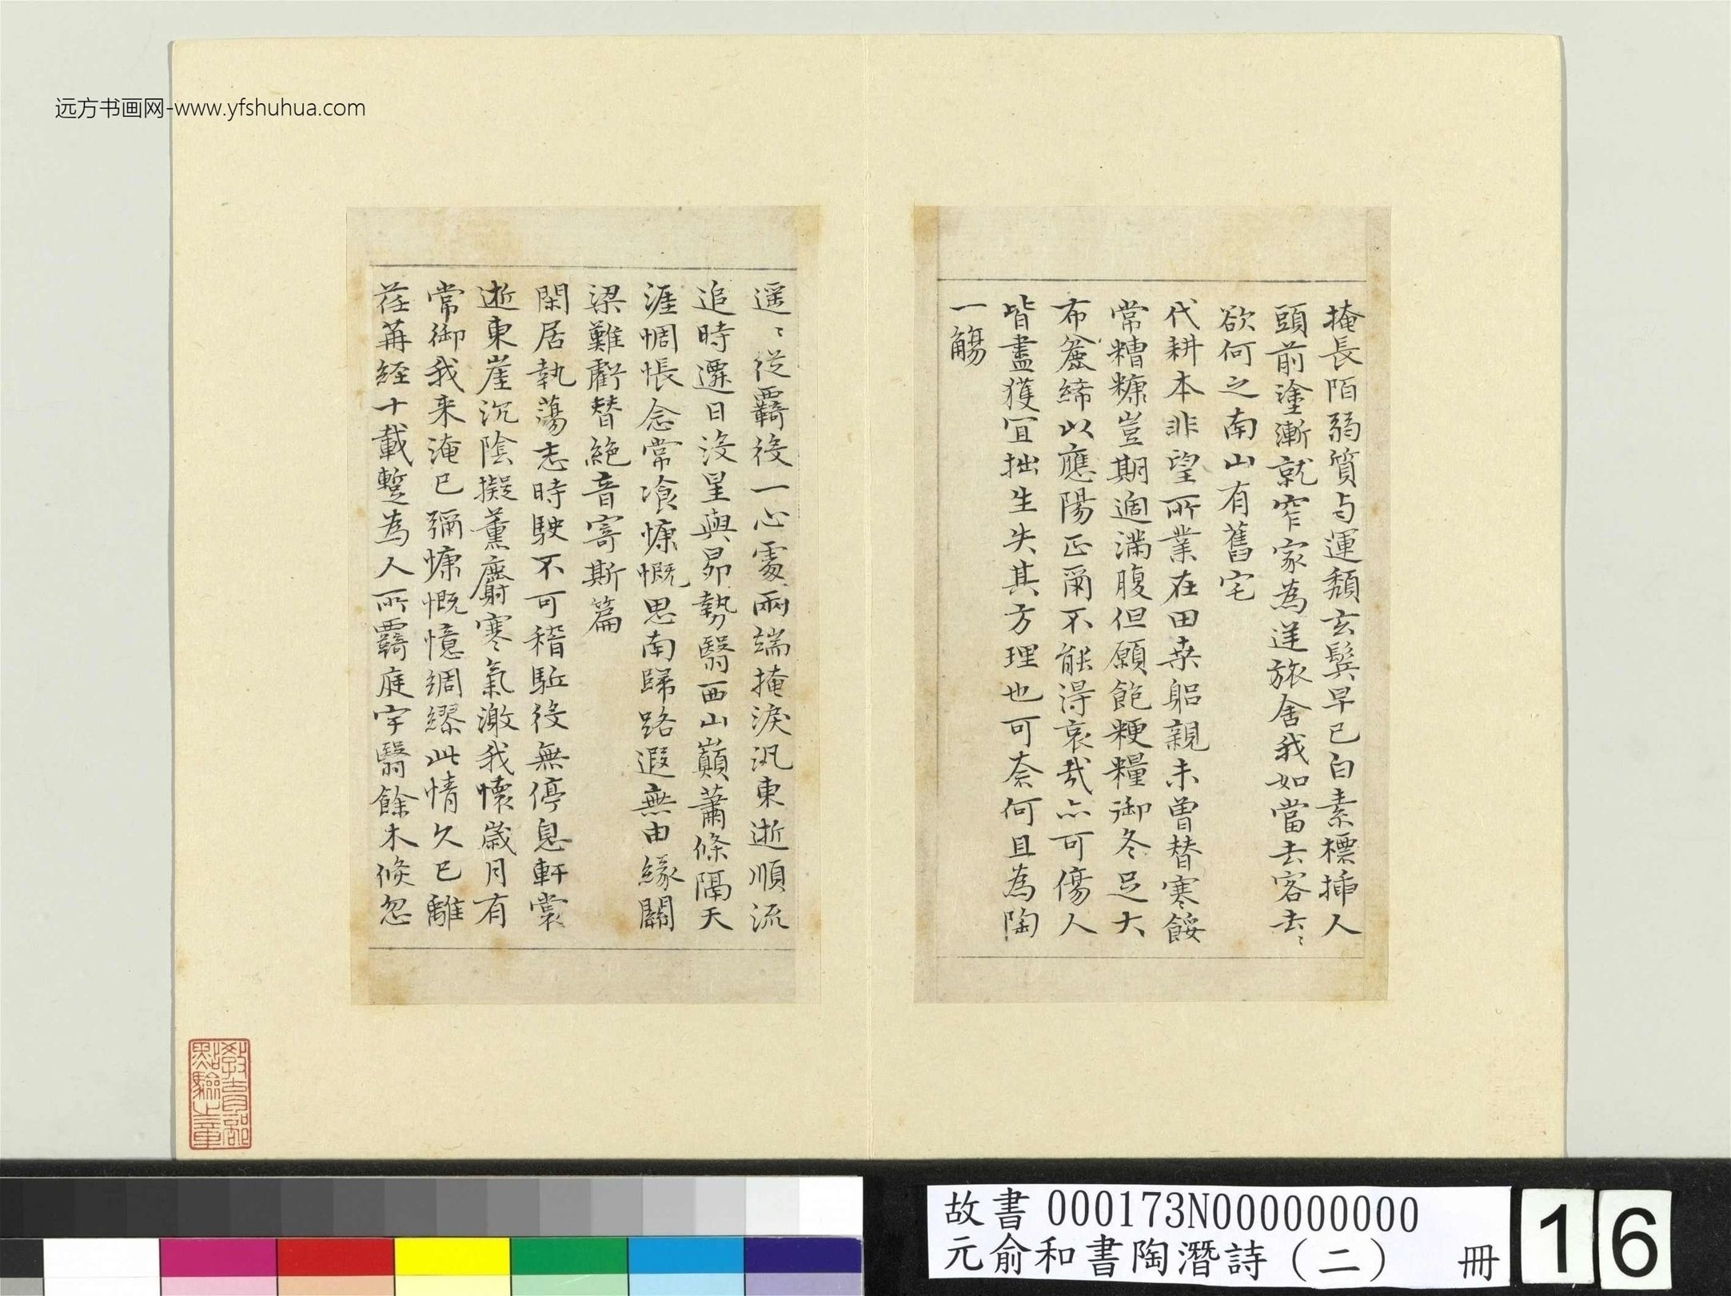 远方书画网-www.yfshuhua.com
掩長陌弱質与運頹玄鬂早已白素標揷人
頭前塗漸就窄家為逆旅舍我如當去客去〻
欲何之南山有舊宅
代耕本非望所業在田桒躳親未曽替寒餒
常糟糠豈期過滿腹但願飽粳糧御冬足大
布麁絺以應陽正爾不能得哀㢤亦可傷人
皆盡獲冝拙生失其方理也可奈何且為陶
一觴
遥〻從覊役一心處兩端掩淚汎東逝順流
追時遷日沒星與昴勢翳西山巔蕭條隔天
涯惆悵念常飡慷慨思南歸路遐無由緣關
梁難虧替絶音寄斯篇
閑居執蕩志時駛不可稽駈役無停息軒裳
逝東崖沉陰擬薰麝寒氣激我懷歲月有
常御我来淹已彌慷慨憶綢繆此情久已離
荏苒経十載蹔為人所覊庭宇翳餘木倏忽
教育部
點驗之章
故書 000173N000000000
元俞和書陶潛詩（二） 冊
16